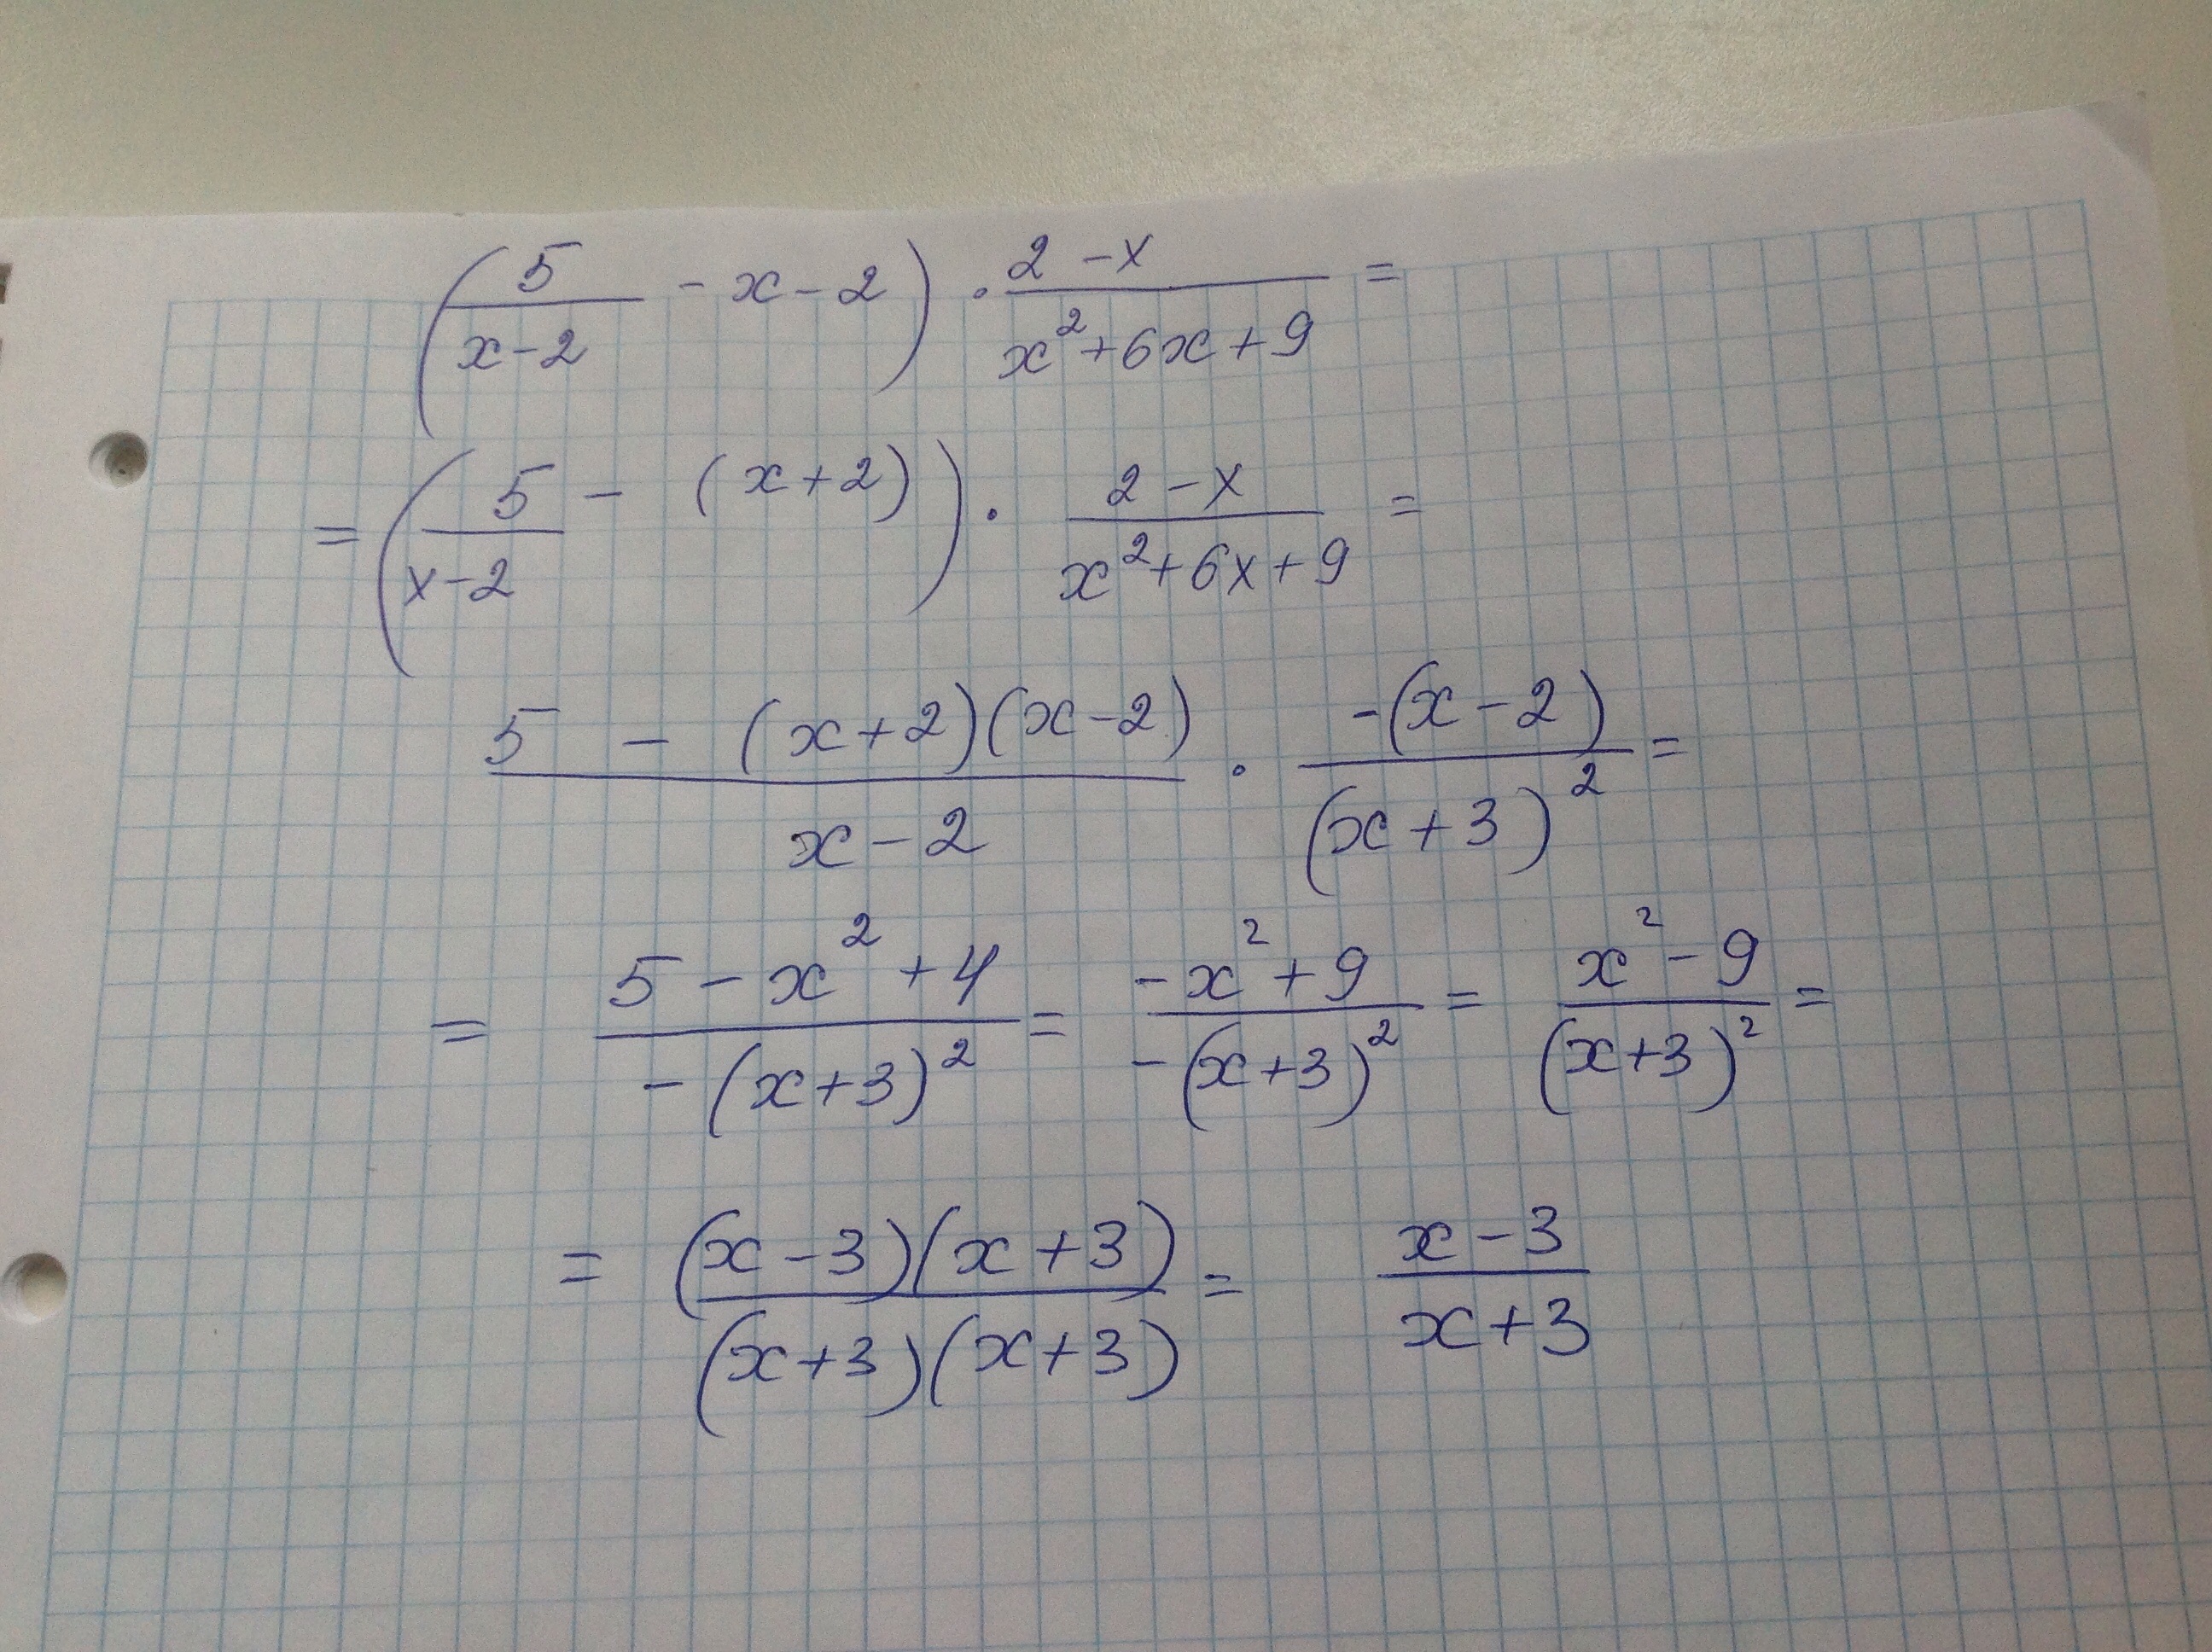 (5/(x-2) - x - 2) · (2-x)/(x²+6x+9) =
= (5/(x-2) - (x+2)) · (2-x)/(x²+6x+9) =
(5 - (x+2)(x-2))/(x-2) · (-(x-2))/(x+3)² =
= (5-x²+4)/(-(x+3)²) = (-x²+9)/(-(x+3)²) = (x²-9)/(x+3)² =
= ((x-3)(x+3))/((x+3)(x+3)) = (x-3)/(x+3)